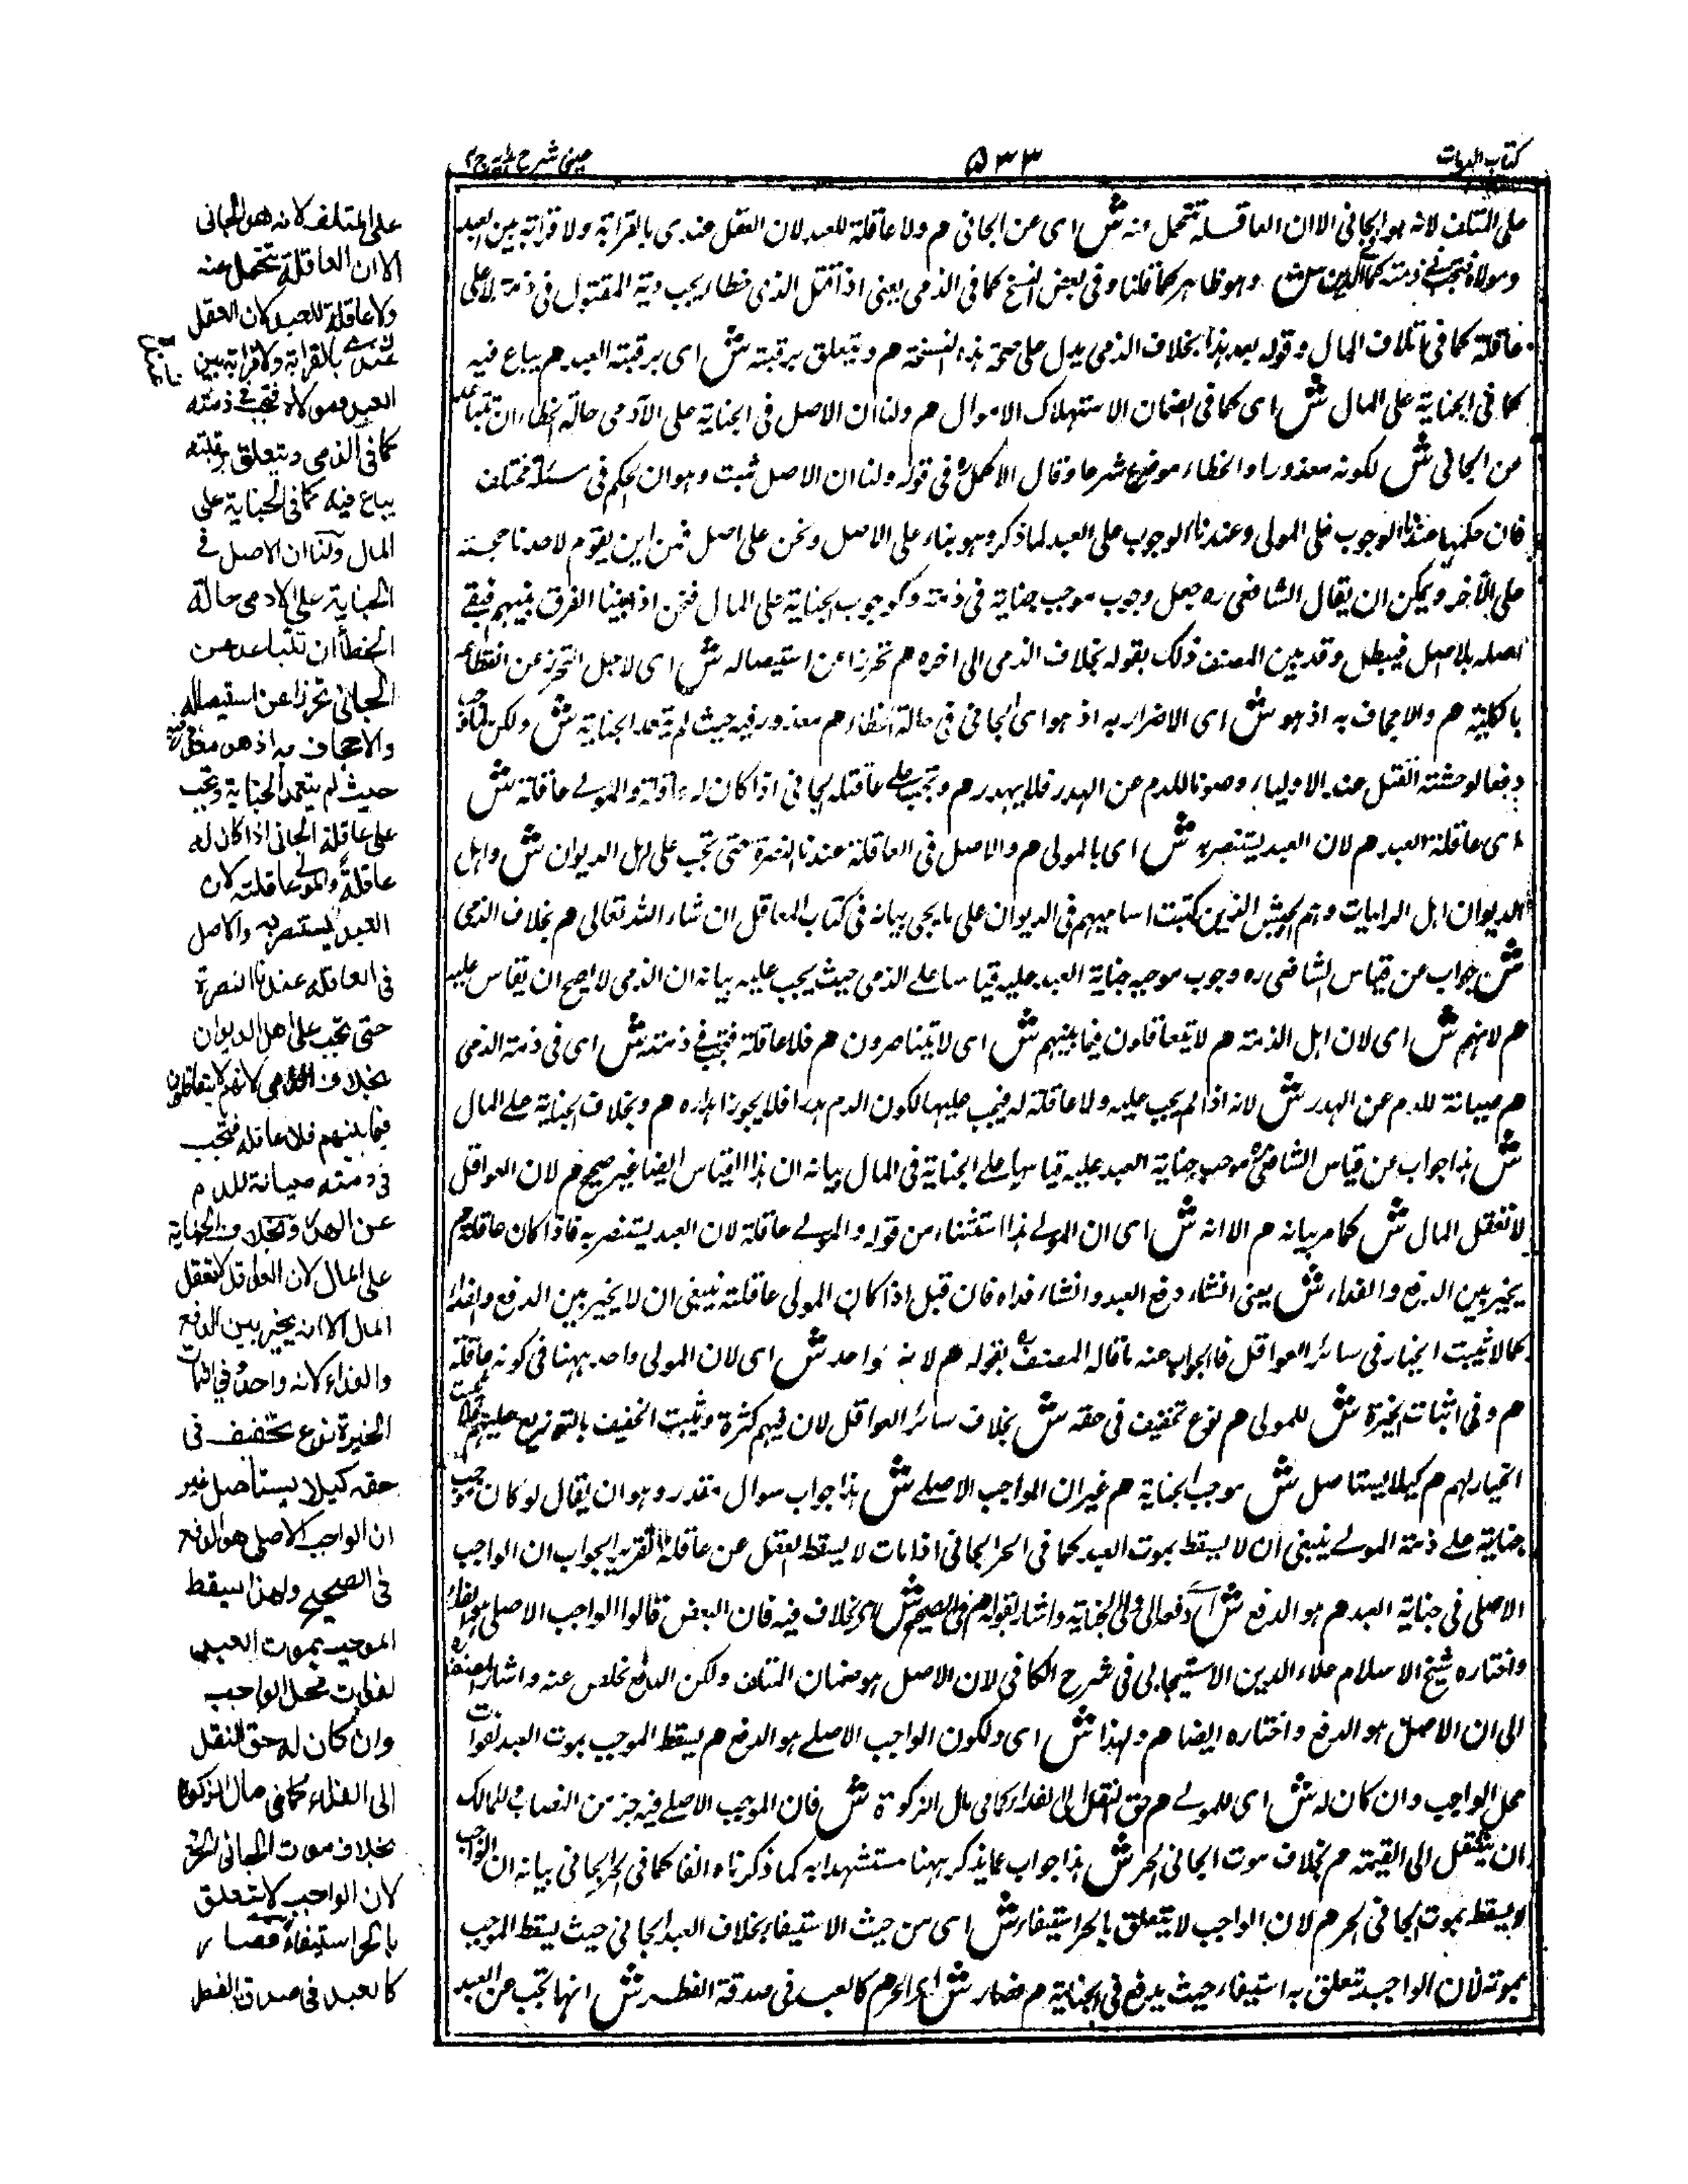 كتاب الديات
۵۳۳
عینی شرح هدایة ج ۴
على المتلف لانه هو الجانى الا ان العاقلة تتحمل عنه ش اى عن الجانى م ولا عاقلة للعبد لان العقل عندى بالقرابة ولا قرابة بين العبد
ومولاه فتجب فى ذمته كما فى الدين ش وهو ظاهر كما قلنا وفى بعض النسخ كما فى الذمى يعنى اذا قتل الذمى خطاء يجب دية المقتول فى ذمته لا على
عاقلته كما فى اتلاف المال وقوله بعد هذا بخلاف الذمى يدل على صحة هذه النسخة م ويتعلق برقبته ش اى برقبة العبد م يباع فيه
كما فى الجناية على المال ش اى كما فى الضمان الاستهلاك الاموال م ولنا ان الاصل فى الجناية على الآدمى حالة الخطاء ان تتباعد
عن الجانى ش لكونه معذورا والخطاء موضوع شرعا وقال الاكمل ره فى قوله ولنا ان الاصل ثبت وهو ان الحكم فى مسئلة مختلف
فان حكمها عندنا الوجوب على المولى وعنده الوجوب على العبد لما ذكر وهو بناء على الاصل ونحن على اصل فمن اين يقوم لاحدنا حجة
على الآخر ويمكن ان يقال الشافعى ره جعل وجوب موجب جناية فى ذمته كوجوب الجناية على المال فنحن اذا بينا الفرق بينهم فبقى
اصله بلا اصل فيبطل وقد بين المصنف ذلك بقوله بخلاف الذمى الى اخره م تحرزا عن استيصاله ش اى لاجل التحرز عن انقطاعه
بالكلية م والاجحاف به اذ هو ش اى الاضرار به اذ هو اى الجانى فى حالة الخطاء م معذور فيه حيث لم يتعمد الجناية ش ولكن
دفعا لوحشة القتل عند الاولياء وصونا للدم عن الهدر فلا يهدر م وتجب على عاقلة الجانى اذا كان له عاقلة والمولى عاقلته ش
اى عاقلة العبد م لان العبد يستنصر به ش اى بالمولى م والاصل فى العاقلة عندنا النصرة حتى تجب على اهل الديوان ش واهل
الديوان اهل الرايات وهم الجيش الذين كتبت اساميهم فى الديوان على ما يجى بيانه فى كتاب المعاقل ان شاء الله تعالى م بخلاف الذمى
ش جواب عن قياس الشافعى ره وجوب موجب جناية العبد عليه قياسا على الذمى حيث يجب عليه بيانه ان الذمى لا يصح ان يقاس عليه
م لانهم ش اى لان اهل الذمة م لا يتعاقلون فيما بينهم ش اى لا يتناصرون م فلا عاقلة فتجب فى ذمته ش اى فى ذمة الذمى
م صيانة للدم عن الهدر ش لانه اذا لم يجب عليه ولا عاقلة له فيجب عليها لكون الدم هدرا فلا يجوز اهداره م وبخلاف الجناية على المال
ش هذا جواب عن قياس الشافعى ره موجب جناية العبد عليه قياسا على الجناية فى المال بيانه ان هذا القياس ايضا غير صحيح م لان العواقل
لا تعقل المال ش كما مر بيانه م الا انه ش اى ان المولى هذا استثناء من قوله والمولى عاقلة لان العبد يستنصر به فاذا كان عاقلة م
يخير بين الدفع والفداء ش يعنى ان شاء دفع العبد وان شاء فداه فان قيل اذا كان المولى عاقلته ينبغى ان لا يخير بين الدفع والفداء
كما لا يثبت الخيار فى سائر العواقل فالجواب عنه ما قاله المصنف ره بقوله م لانه واحد ش اى لان المولى واحد ههنا فى كونه عاقلة
م وفى اثبات الخيرة ش للمولى م نوع تخفيف فى حقه ش بخلاف سائر العواقل لان فيهم كثرة ويثبت التخفيف بالتوزيع عليهم
الخيار لهم م كيلا يستاصل ش موجب الجناية م غير ان الواجب الاصلى ش هذا جواب سوال مقدر وهو ان يقال لو كان موجب
جناية على ذمة المولى ينبغى ان لا يسقط بموت العبد كما فى الحر الجانى اذا مات لا يسقط العقل عن عاقلة تقرير الجواب ان الواجب
الاصلى فى جناية العبد م هو الدفع ش اى دفع الى ولى الجناية واشار بقوله م فى الصحيح ش الى خلاف فيه فان البعض قالوا الواجب الاصلى هو الفداء
واختاره شيخ الاسلام علاء الدين الاسبيجابى فى شرح الكافى لان الاصل هو ضمان المتلف ولكن الدفع تخلص عنه واشار المصنف ره
الى ان الاصل هو الدفع واختاره ايضا م ولهذا ش اى ولكون الواجب الاصلى هو الدفع م يسقط الموجب بموت العبد لفوات
محل الواجب وان كان له ش اى للمولى م حق النقل الى الفداء كما فى مال الزكوة ش فان الموجب الاصلى فيه جزء من النصاب وللمالك
ان ينتقل الى القيمة م بخلاف موت الجانى الحر ش هذا جواب عما يذكر ههنا مستشهدا به كما ذكرناه انفا كما فى الحر الجانى بيانه ان الواجب
لا يسقط بموت الجانى الحر م لان الواجب لا يتعلق بالحر استيفاء ش اى من حيث الاستيفاء بخلاف العبد الجانى حيث يسقط الموجب
بموته لان الواجب تعلق به استيفاء حيث يدفع فى الجناية م فصار ش اى الحر م كالعبد فى صدقة الفطر ش انها تجب عن العبد
على المتلف لانه هو الجانى
الا ان العاقلة تتحمل عنه
ولا عاقلة للعبد لان العقل
عندى بالقرابة ولا قرابة بين
العبد ومولاه فتجب فى ذمته
كما فى الذمى ويتعلق برقبته
يباع فيه كما فى الجناية على
المال ولنا ان الاصل فى
الجناية على الادمى حالة
الخطأ ان تتباعد عن
الجانى تحرزا عن استيصاله
والاجحاف به اذ هو معذور فيه
حيث لم يتعمد الجناية وتجب
على عاقلة الجانى اذا كان له
عاقلة والمولى عاقلته لان
العبد يستنصر به والاصل
فى العاقلة عندنا النصرة
حتى تجب على اهل الديوان
بخلاف الذمى لانهم لا يتعاقلون
فيما بينهم فلا عاقلة فتجب
فى ذمته صيانة للدم
عن الهدر وبخلاف الجناية
على المال لان العواقل لا تعقل
المال الا انه يخير بين الدفع
والفداء لانه واحد وفى اثبات
الخيرة نوع تخفيف فى
حقه كيلا يستاصل غير
ان الواجب الاصلى هو الدفع
فى الصحيح ولهذا يسقط
الموجب بموت العبد
لفوات محل الواجب
وان كان له حق النقل
الى الفداء كما فى مال الزكوة
بخلاف موت الجانى الحر
لان الواجب لا يتعلق
بالحر استيفاء فصار
كالعبد فى صدقة الفطر